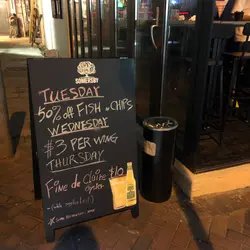 SOMERSBY
TUESDAY
50% off FISH n CHIPS
WEDNESDAY
$3 PER WING
THURSDAY
Fine de Claire $10
oyster